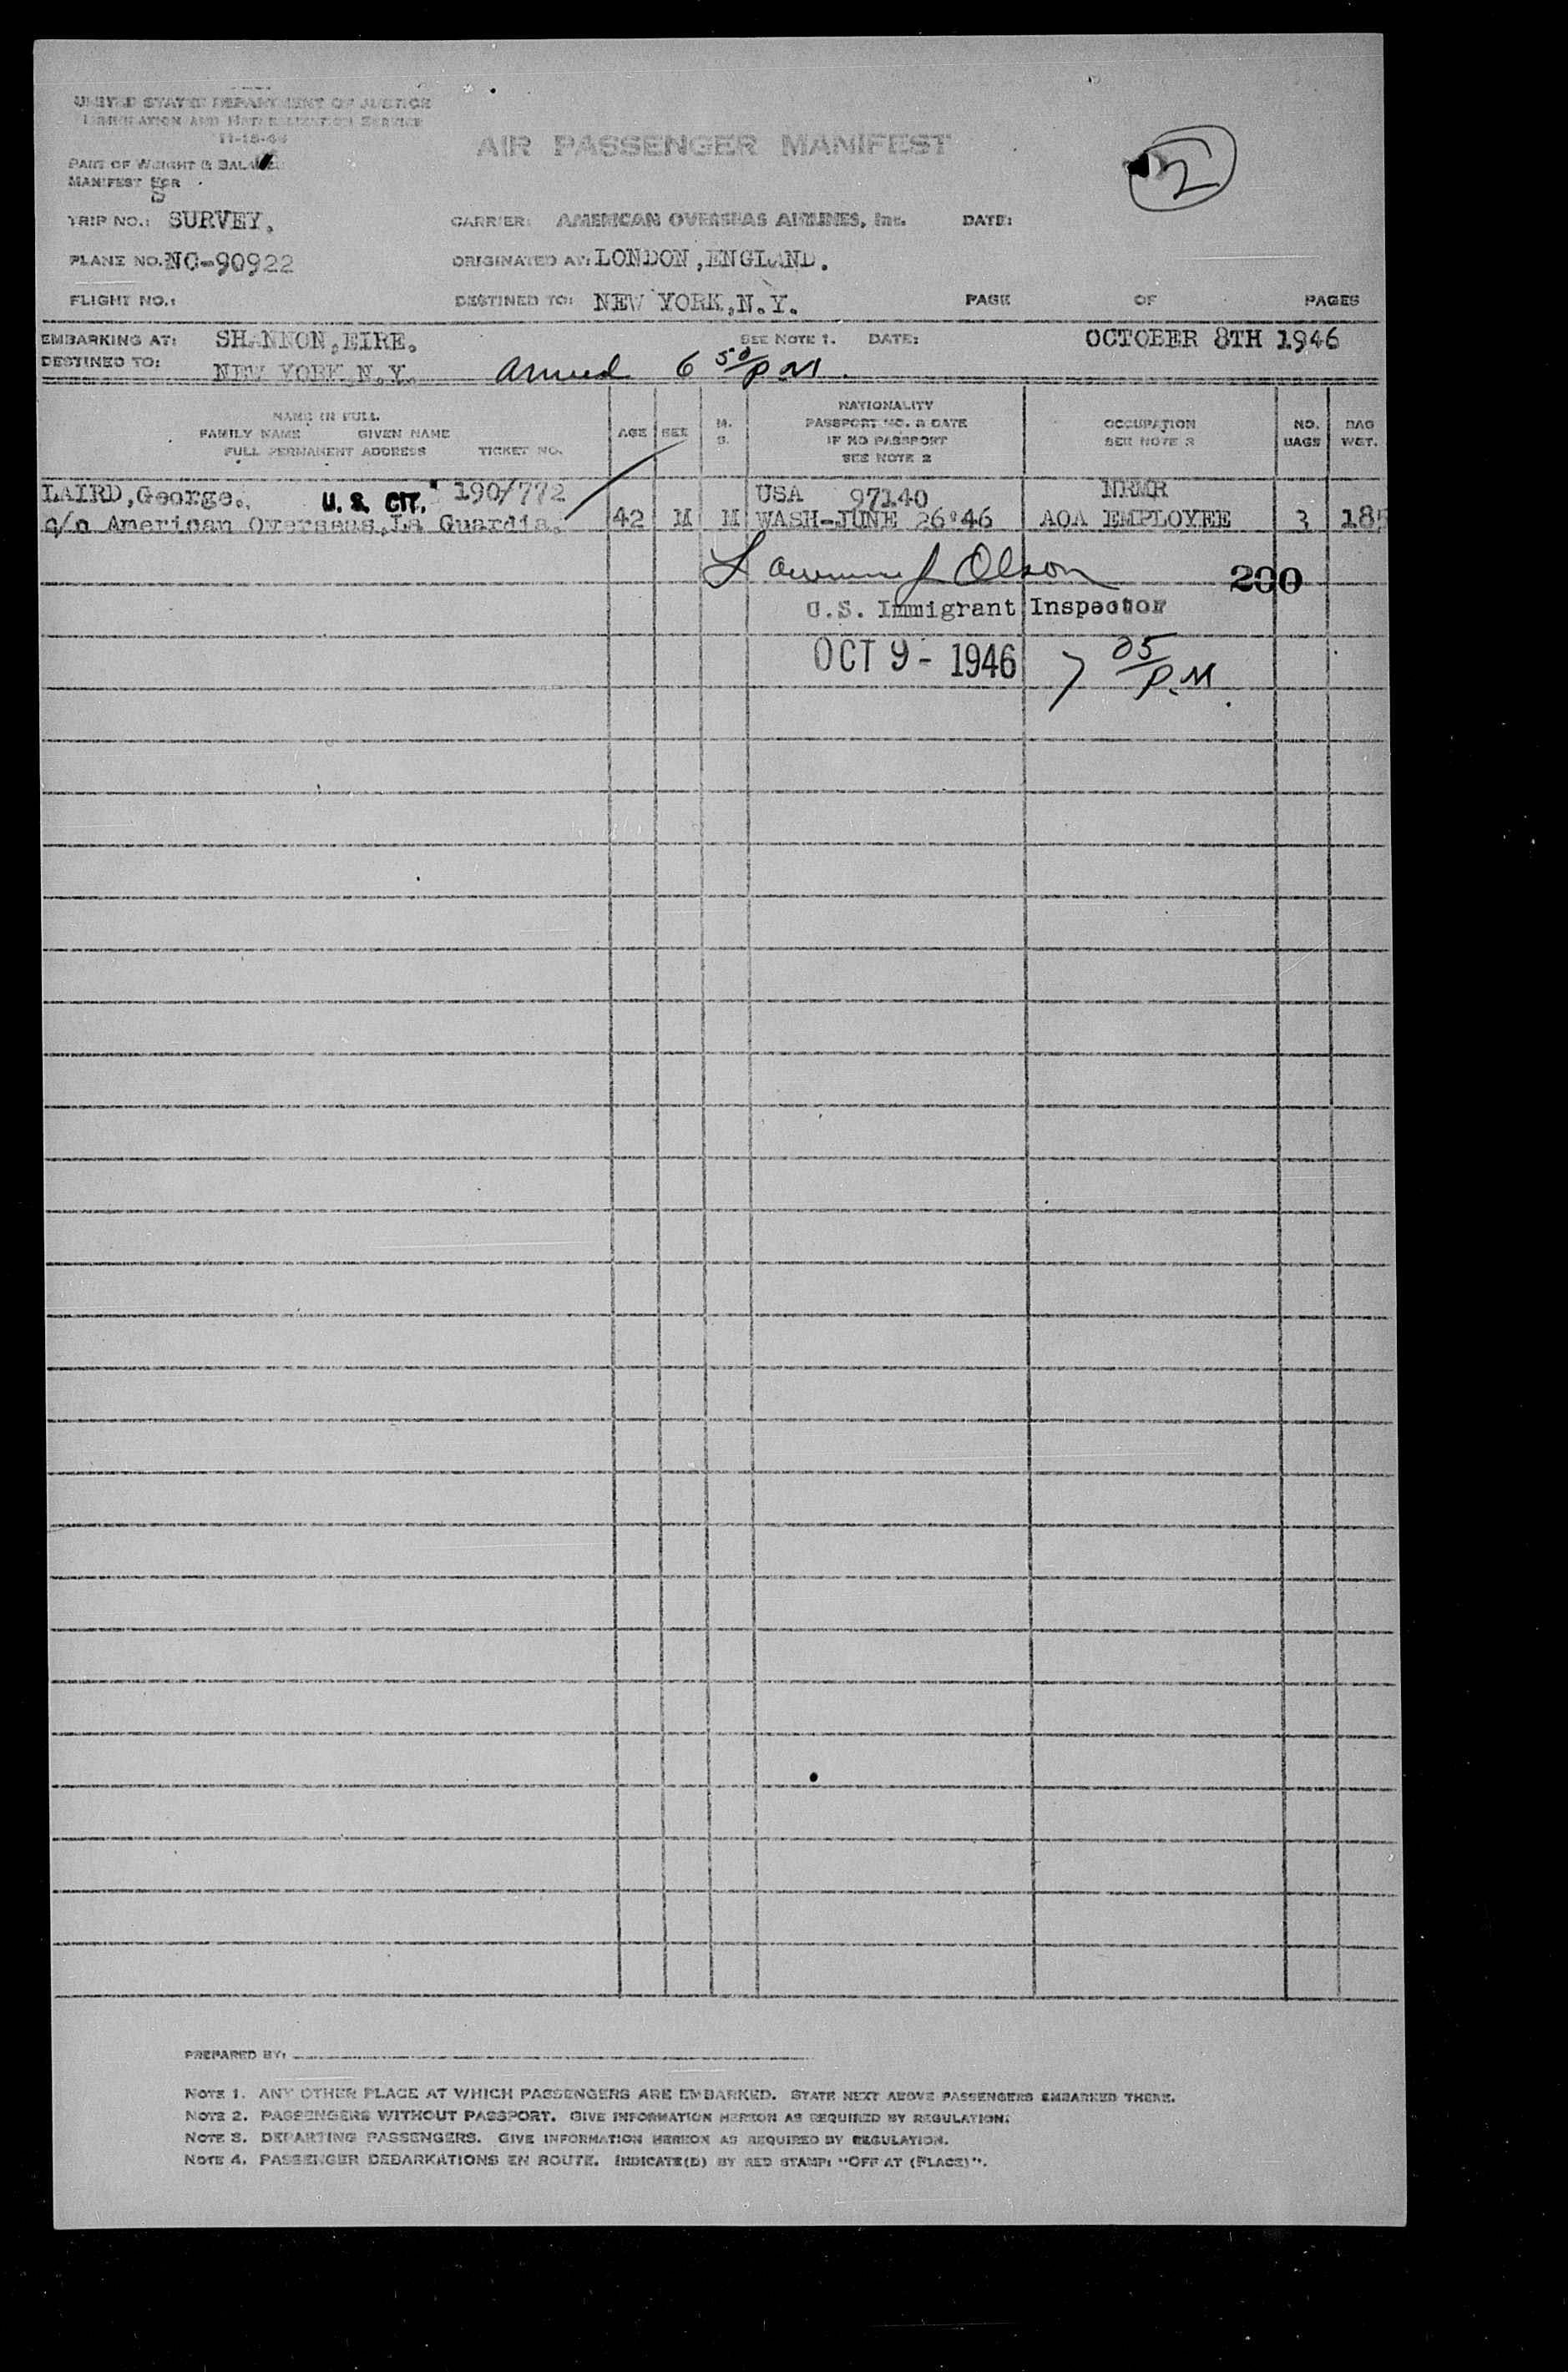 UNITED STATES DEPARTMENT OF JUSTICE
IMMIGRATION AND NATURALIZATION SERVICE
11-15-46
AIR PASSENGER MANIFEST
2
PART OF WEIGHT & BALANCE
MANIFEST FOR
TRIP NO.: SURVEY. CARRIER: AMERICAN OVERSEAS AIRLINES, Inc. DATE:
PLANE NO. NC-90922 ORIGINATED AT: LONDON,ENGLAND.
FLIGHT NO.: DESTINED TO: NEW YORK,N.Y. PAGE OF PAGES
EMBARKING AT: SHANNON,EIRE. SEE NOTE 1. DATE: OCTOBER 8TH 1946
DESTINED TO: NEW YORK,N.Y. Arrived 6 50/PM.
NAME IN FULL
FAMILY NAME GIVEN NAME
FULL PERMANENT ADDRESS TICKET NO.
AGE SEX M. S.
NATIONALITY
PASSPORT NO. & DATE
IF NO PASSPORT
SEE NOTE 2
OCCUPATION
SEE NOTE 3
NO. BAGS
BAG WGT.
LAIRD,George. U.S. CIT. 190/772 USA 97140 NRMR
c/o American Overseas,La Guardia. 42 M M WASH-JUNE 26'46 AOA EMPLOYEE 3 185
Lawrence J Olson 200
U.S. Immigrant Inspector
OCT 9 - 1946 7 05/P.M.
PREPARED BY:
NOTE 1. ANY OTHER PLACE AT WHICH PASSENGERS ARE EMBARKED. STATE NEXT ABOVE PASSENGERS EMBARKED THERE.
NOTE 2. PASSENGERS WITHOUT PASSPORT. GIVE INFORMATION HEREON AS REQUIRED BY REGULATION.
NOTE 3. DEPARTING PASSENGERS. GIVE INFORMATION HEREON AS REQUIRED BY REGULATION.
NOTE 4. PASSENGER DEBARKATIONS EN ROUTE. INDICATE(D) BY RED STAMP: "OFF AT (PLACE)".